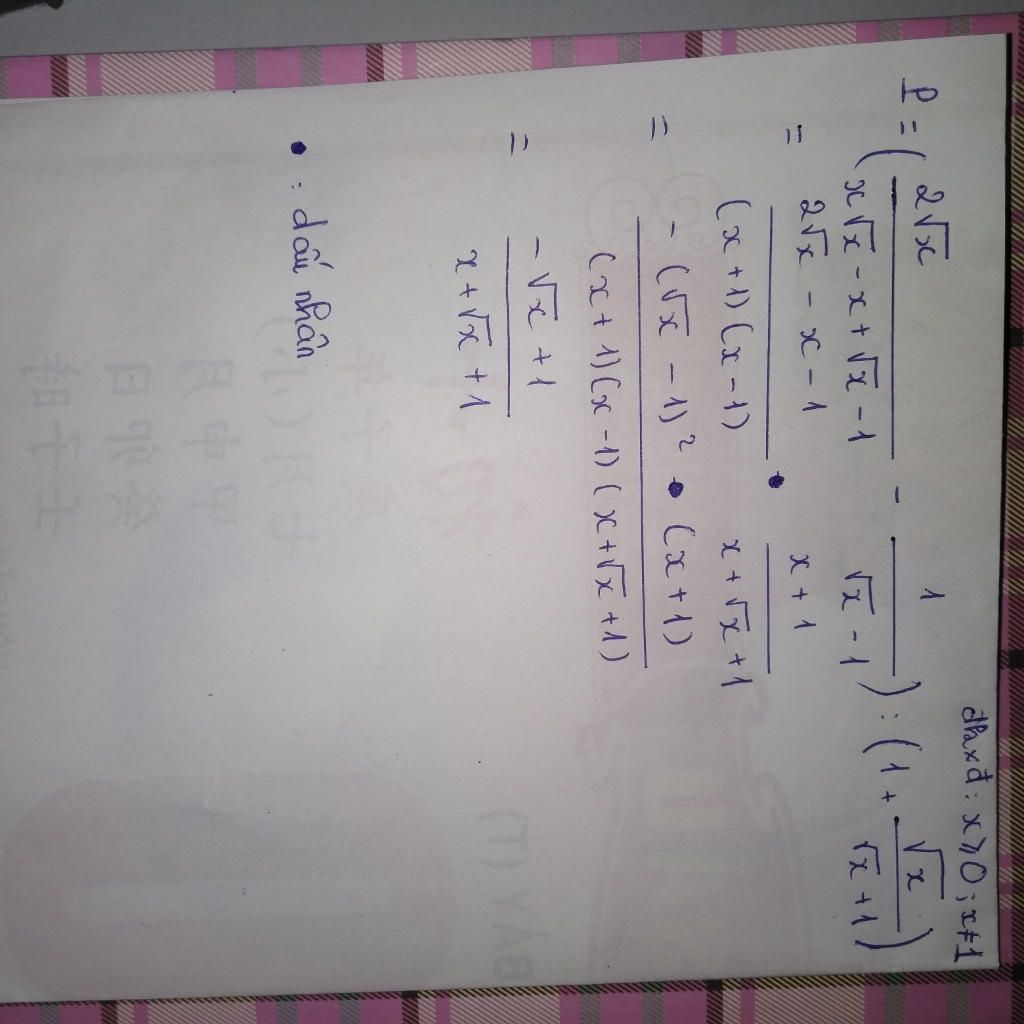 đkxđ: x ≥ 0; x ≠ 1
P = ( 2√x / (x√x - x + √x - 1) - 1 / (√x - 1) ) : ( 1 + √x / (√x + 1) )
= (2√x - x - 1) / ((x + 1)(x - 1)) • (x + 1) / (x + √x + 1)
= (- (√x - 1)² • (x + 1)) / ((x + 1)(x - 1)(x + √x + 1))
= (- √x + 1) / (x + √x + 1)
• : dấu nhân